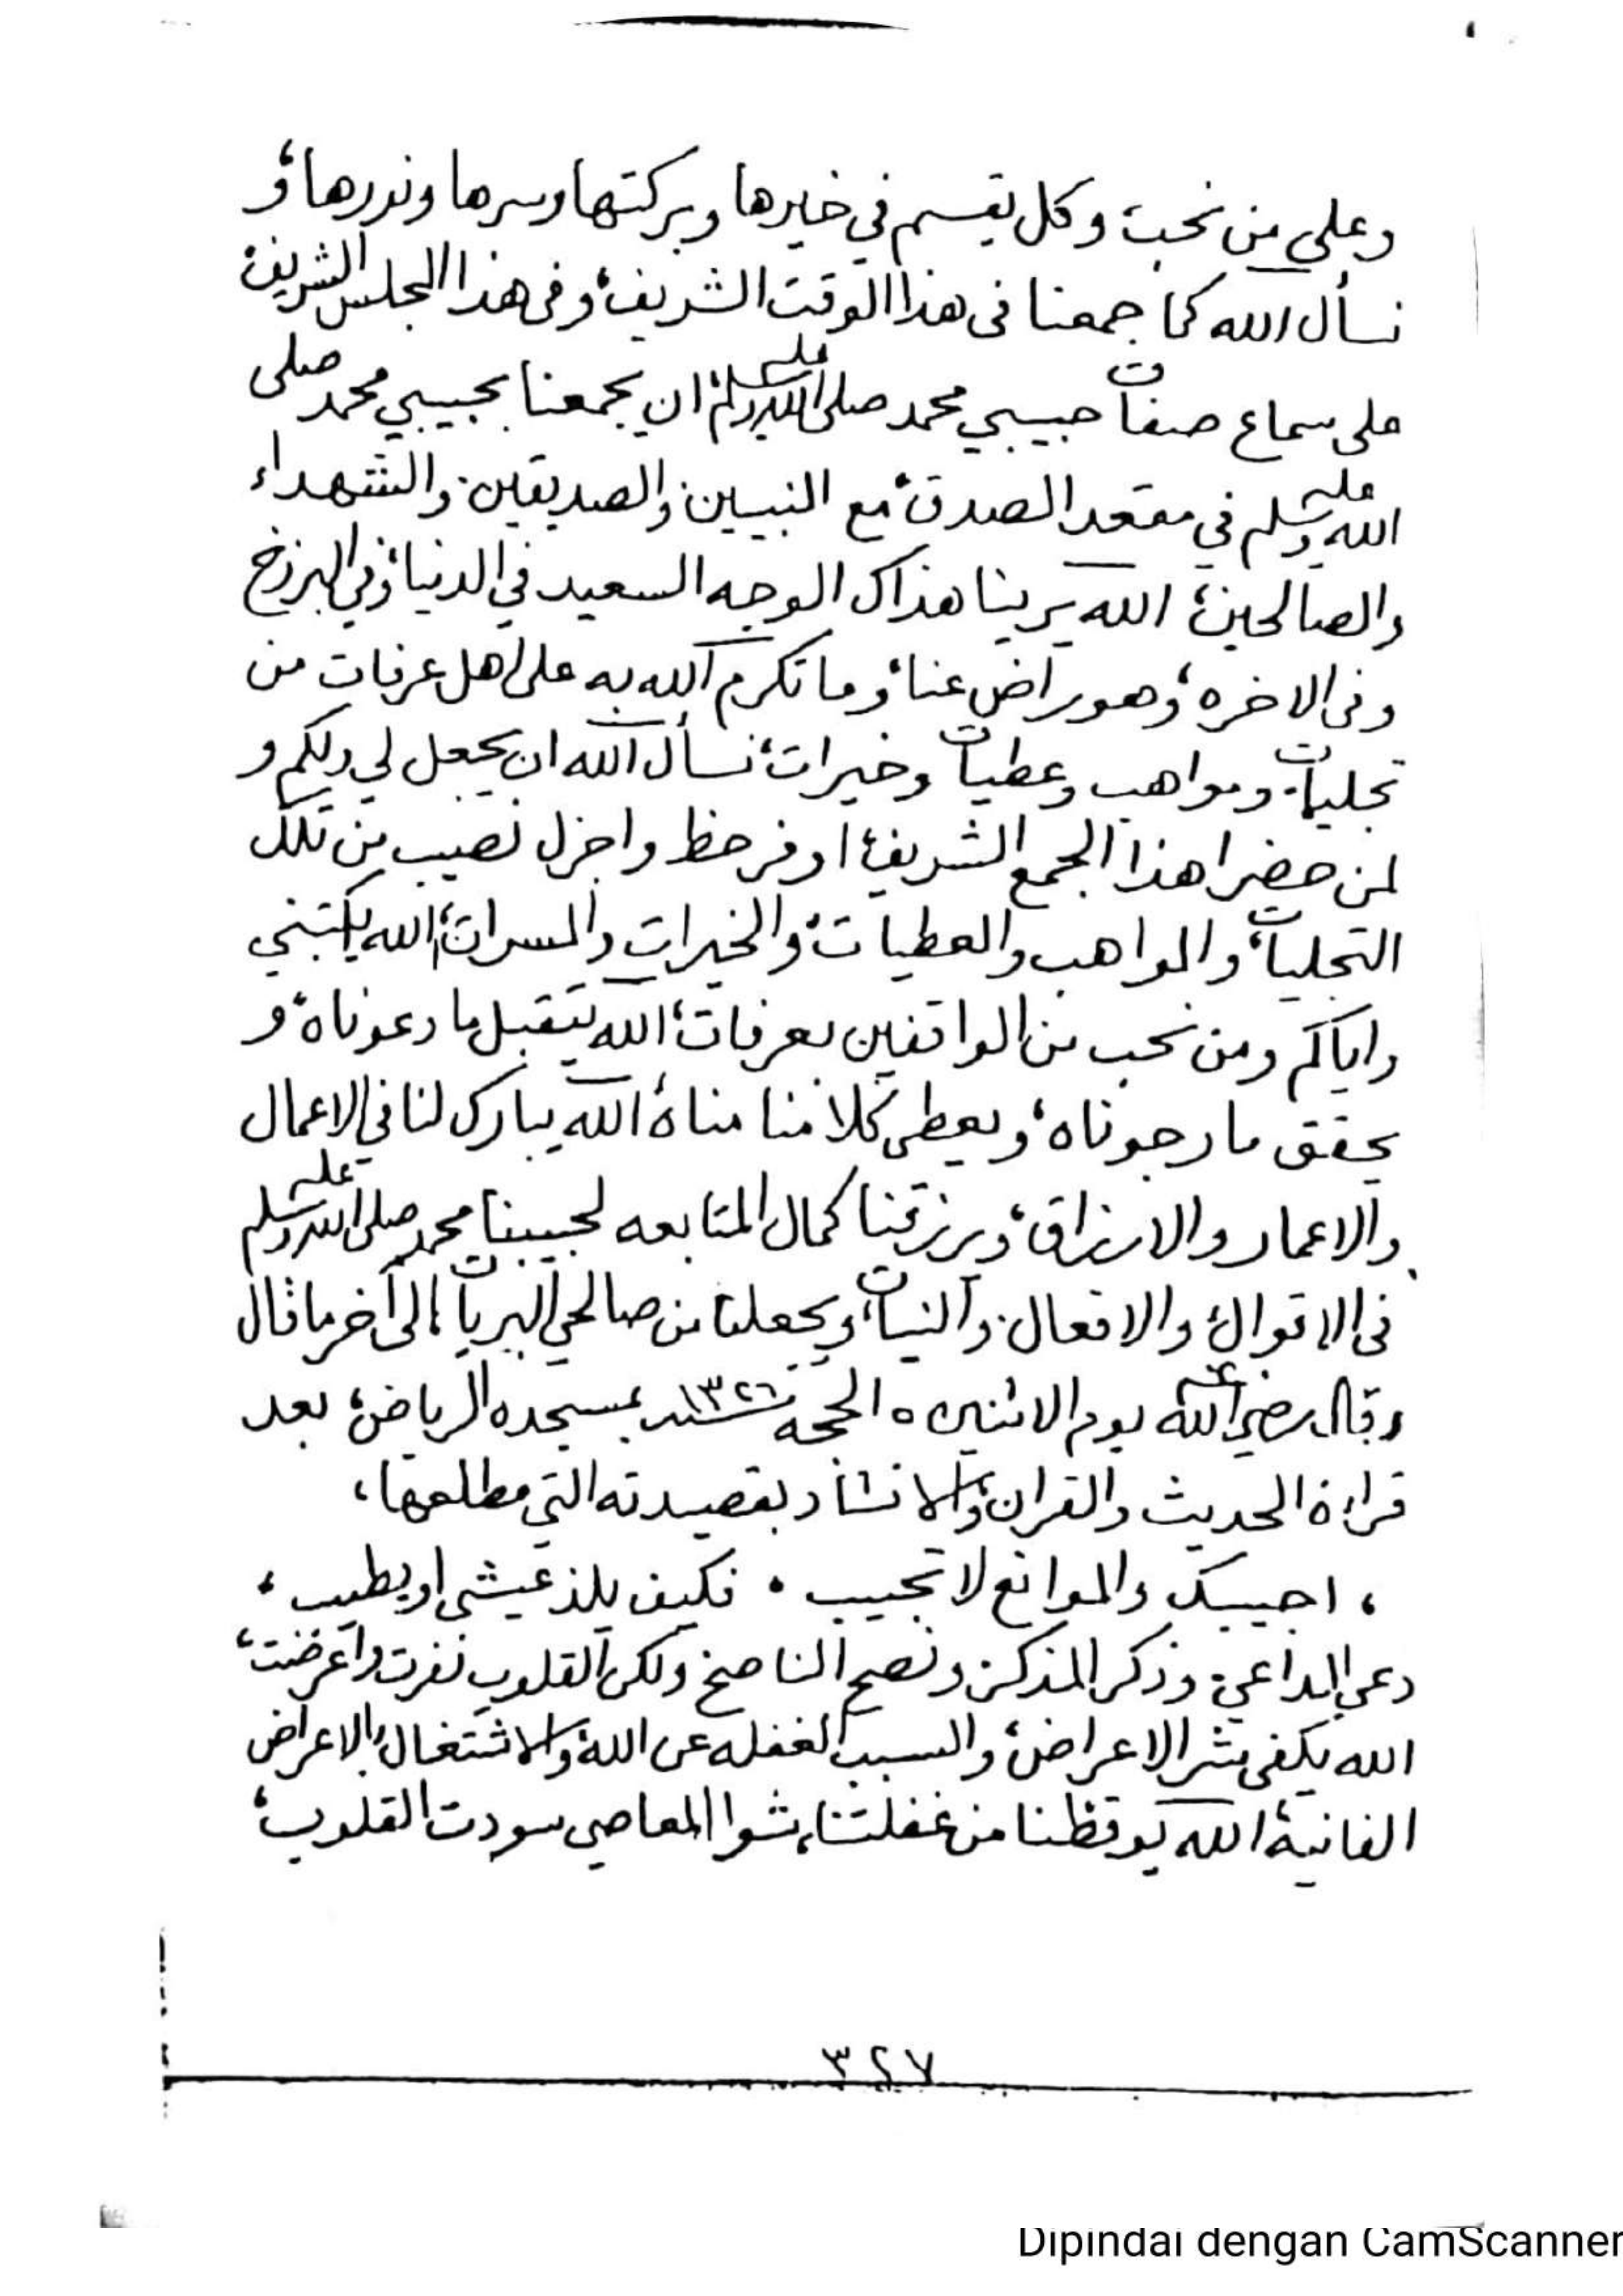 وعلى من نحب وكل يقسم في خيرها وبركتها وسرها ونورها، و
نسأل الله كما جمعنا فى هذا الوقت الشريف، وفى هذا المجلس الشريف،
على سماع صفات حبيبي محمد صلى الله عليه وسلم، ان يجمعنا بحبيبي محمد صلى
الله عليه وسلم في مقعد الصدق، مع النبيين والصديقين والشهداء
والصالحين، الله يرينا هذاك الوجه السعيد في الدنيا، وفي البرزخ
وفى الاخره، وهو راض عنا، وما تكرم الله به على اهل عرفات من
تجليات ومواهب وعطيات وخيرات، نسأل الله ان يجعل لي ولكم و
لمن حضر هذا الجمع الشريف، اوفر حظ واجزل نصيب من تلك
التجليات، والمواهب والعطيات، والخيرات والمسرات، الله يكتبني
واياكم ومن نحب من الواقفين بعرفات، الله يتقبل ما دعوناه، و
يحقق ما رجوناه، ويعطى كلا منا مناه، الله يبارك لنا في الاعمال
والاعمار والارزاق، ويرزقنا كمال المتابعه لحبيبنا محمد صلى الله عليه وسلم
فى الاقوال، والافعال والنيات، ويجعلنا من صالحي البريات، إلى آخر ما قال
وقال رضي الله عنه يوم الاثنين ٥ الحجه سنة ١٣٢٦ بمسجده الرياض، بعد
قراءة الحديث والقران، والانشاد بقصيدته التي مطلعها،
، اجيبك والموانع لا تجيب • فكيف يلذ عيشى او يطيب ،
دعى الداعي وذكر المذكر ونصح الناصح ولكن القلوب نفرت واعرضت،
الله يكفى شر الاعراض، والسبب الغفله عن الله، والاشتغال بالاعراض
الفانية، الله يوقظنا من غفلتنا، شوا المعاصي سودت القلوب،
٣٢٧
Dipindai dengan CamScanner